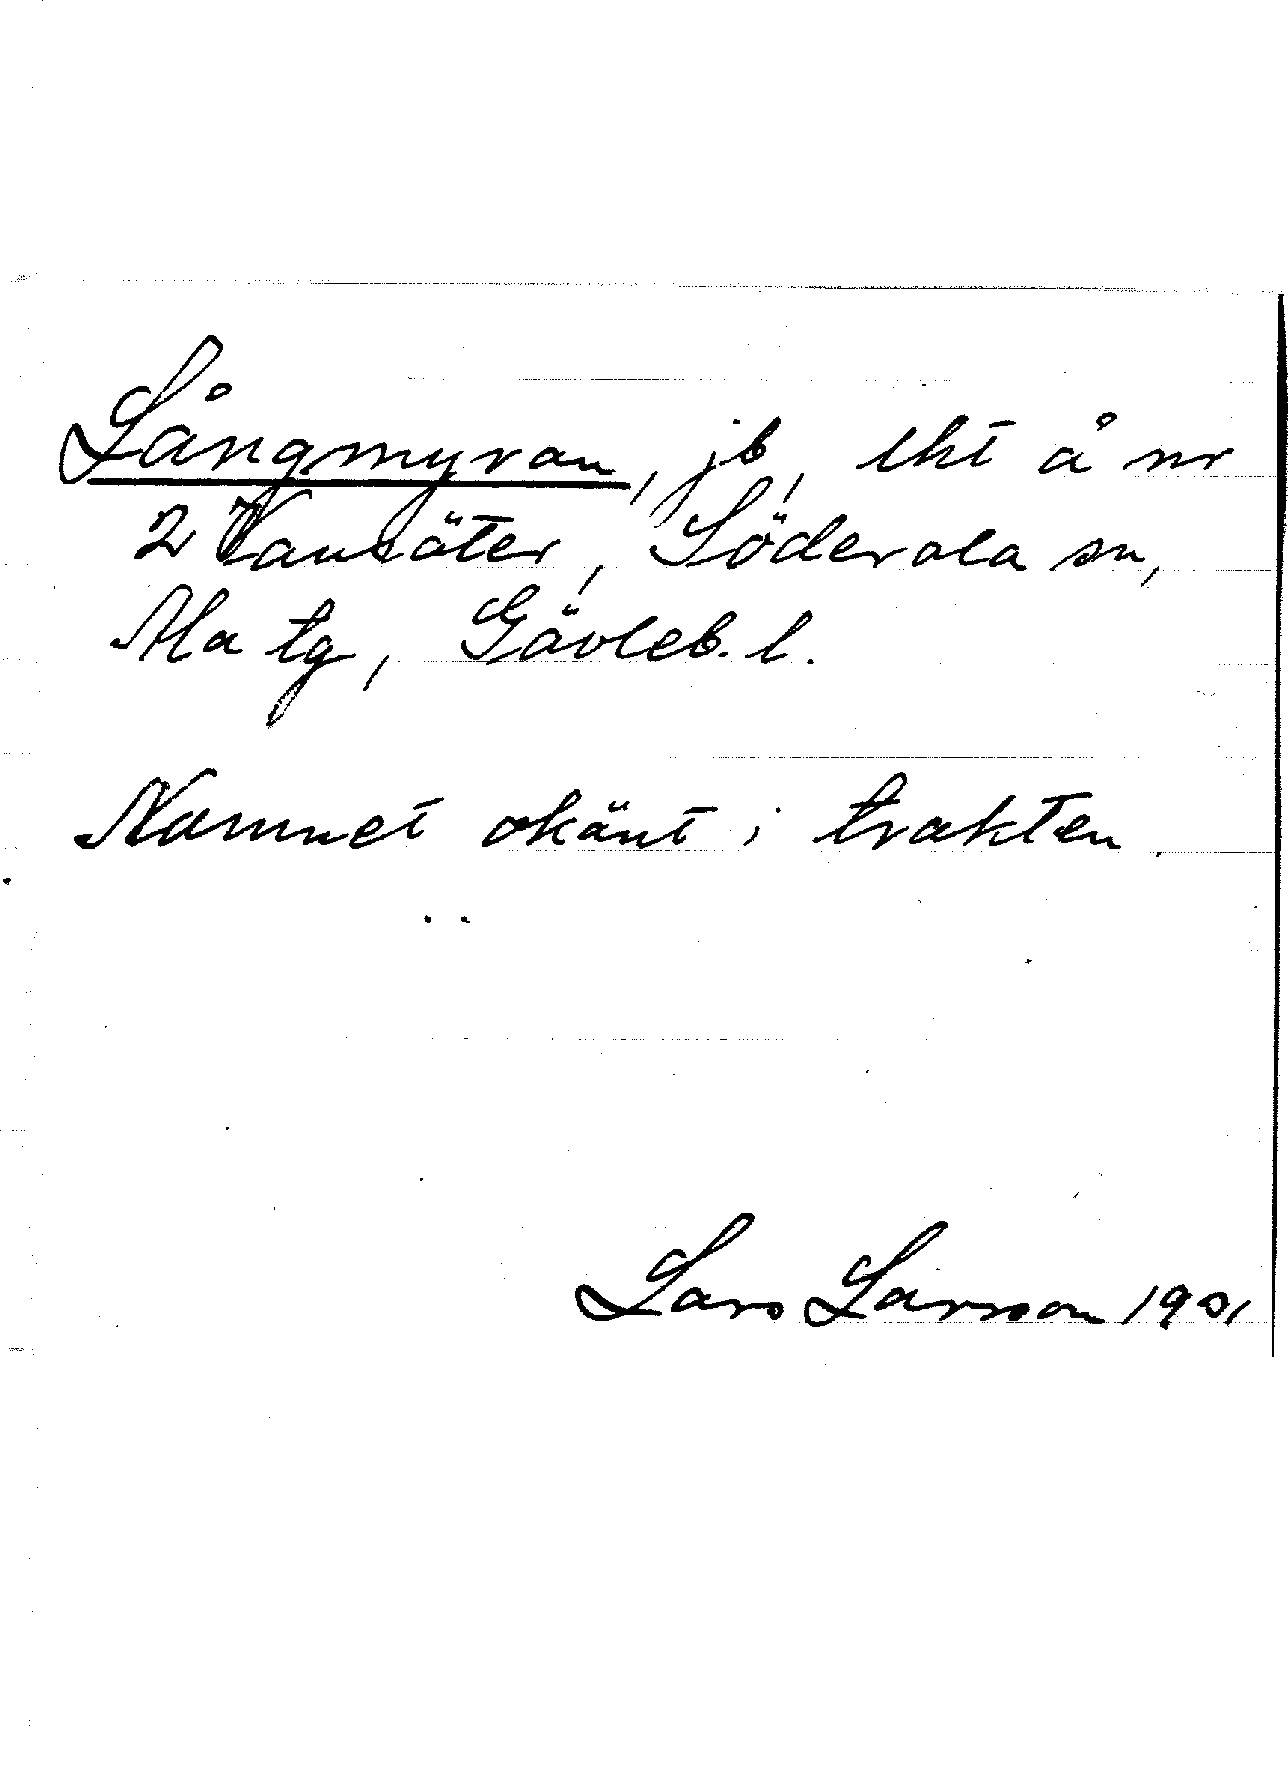 Långmyran, jb, lht å nr
2 Vansäter, Söderala sn,
Ala tg, Gävleb. l.
Namnet okänt i trakten.
Lars Larsson 1901